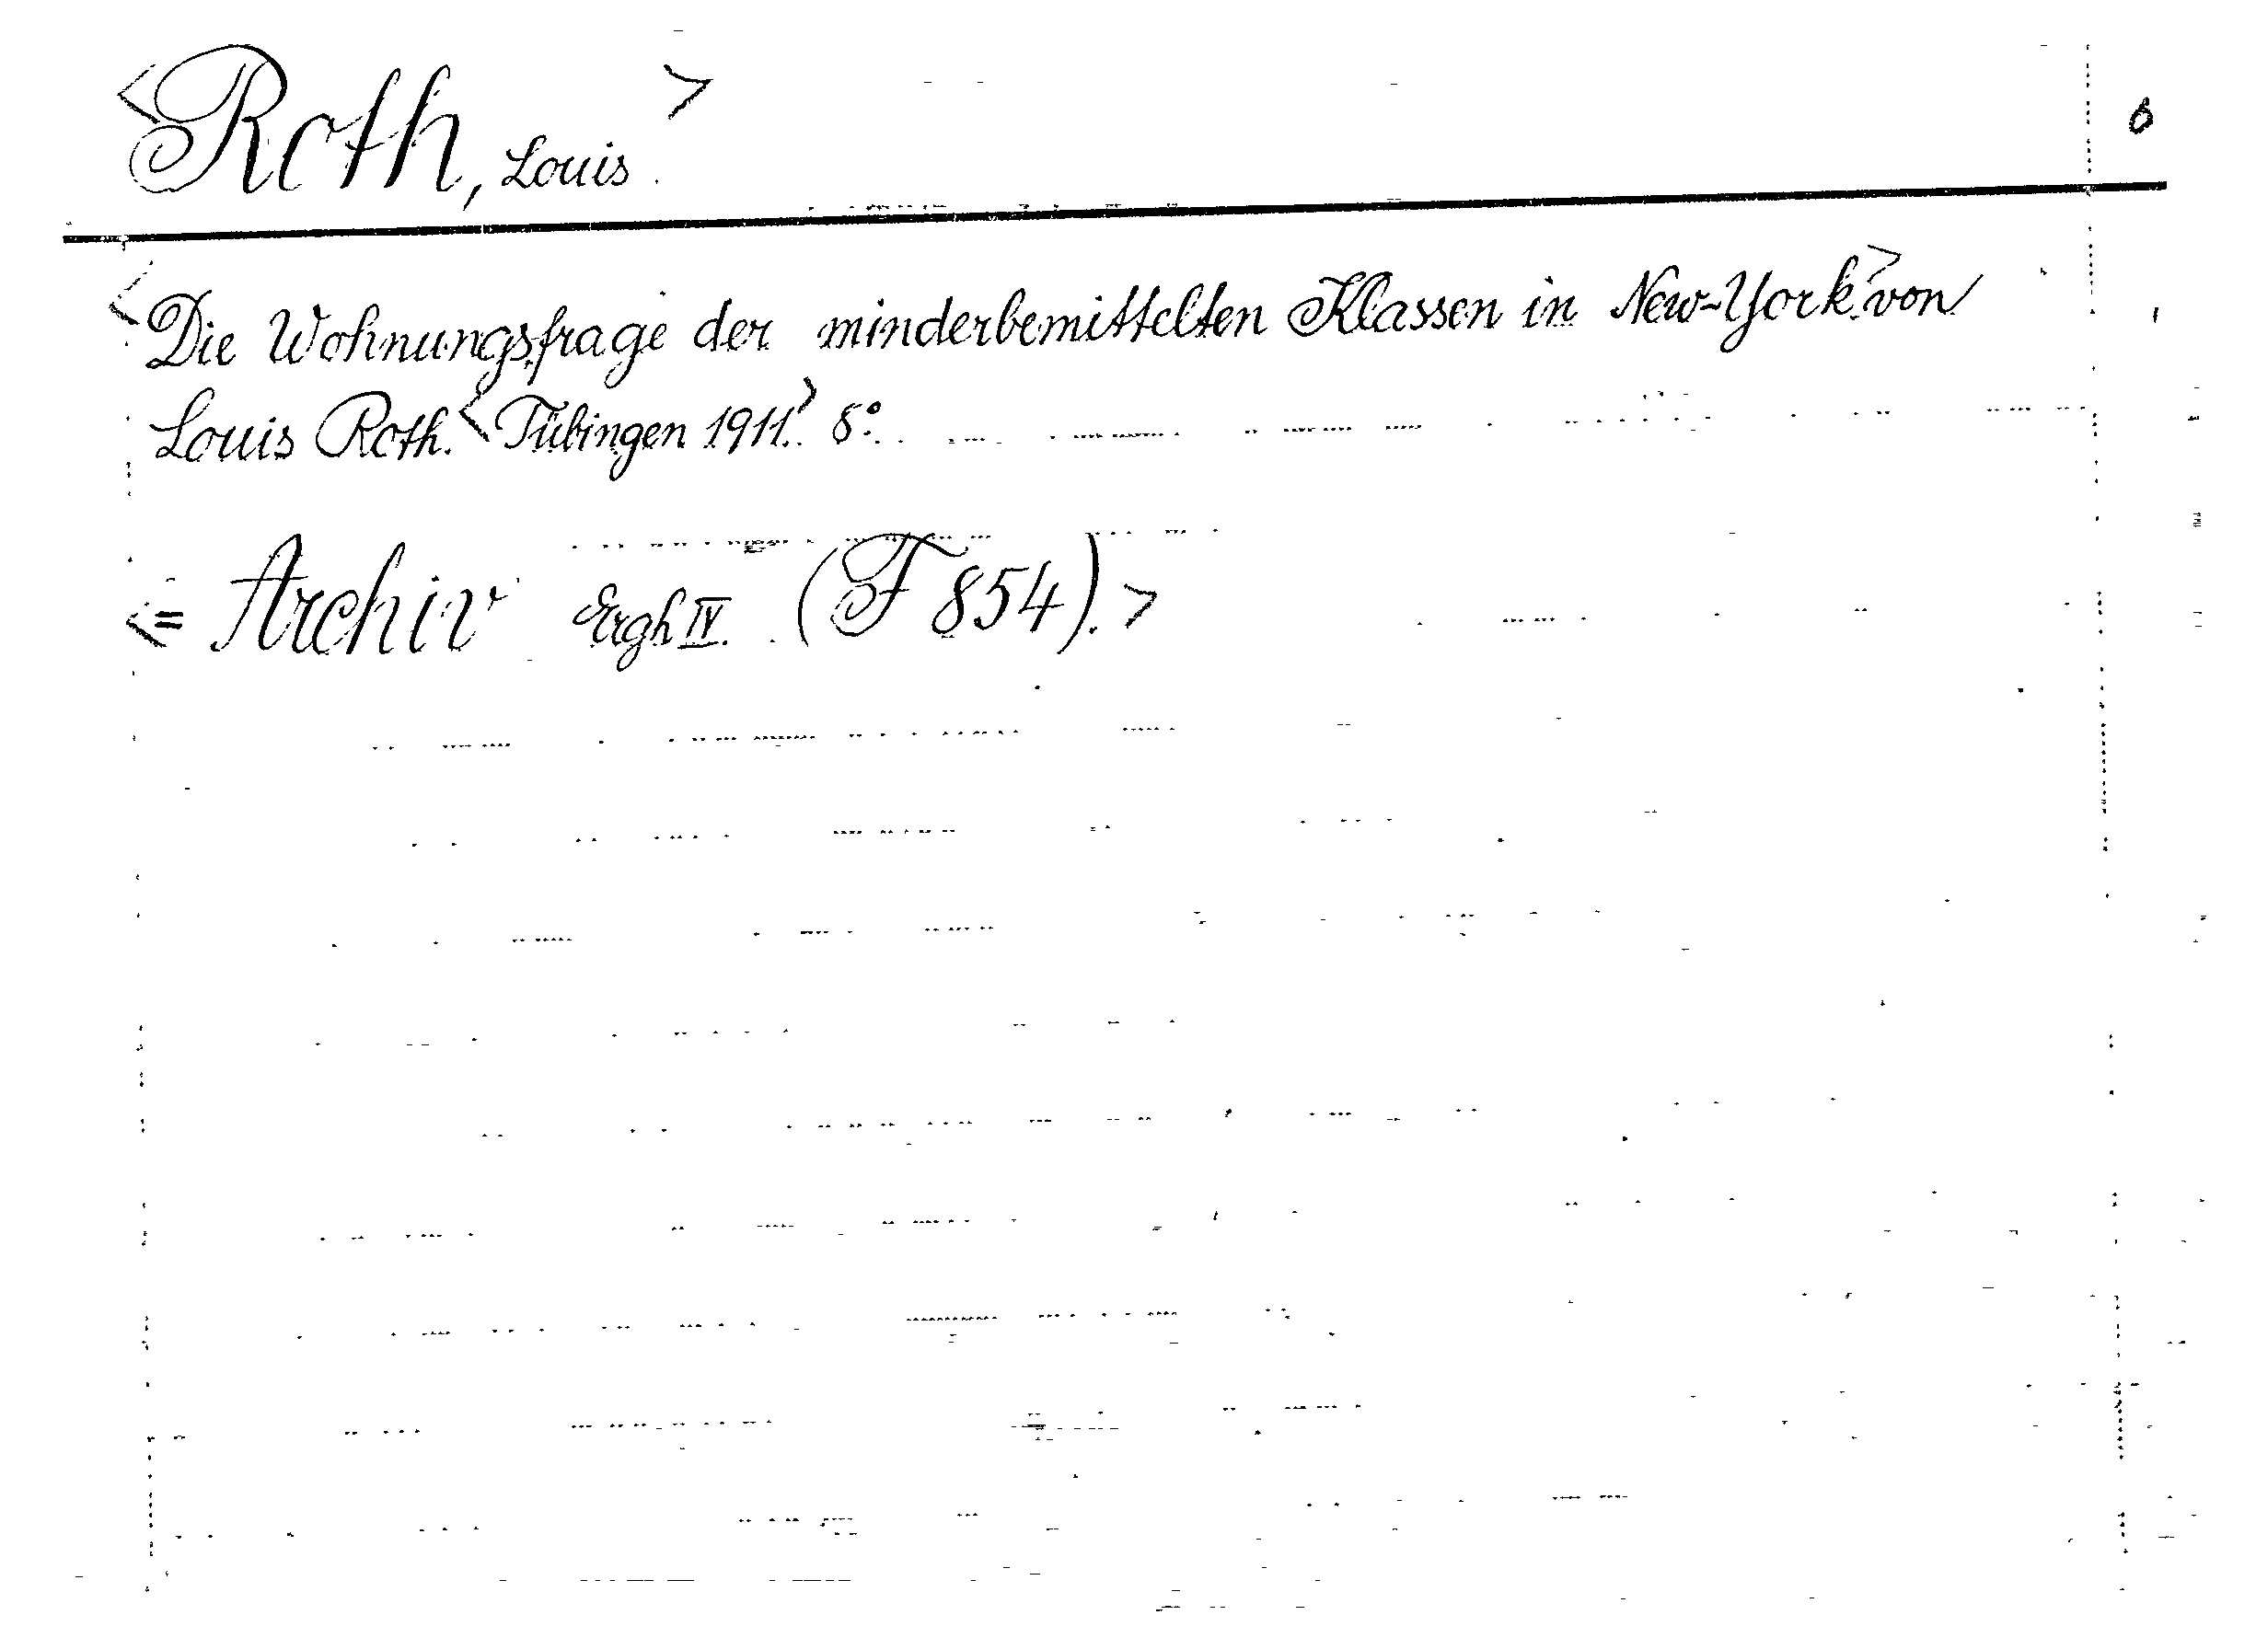 <Roth, Louis> 6
<Die Wohnungsfrage der minderbemittelten Klassen in New-York> von
Louis Roth. <Tübingen 1911.> 8°.
<= Archiv Ergh IV. (F 854).>